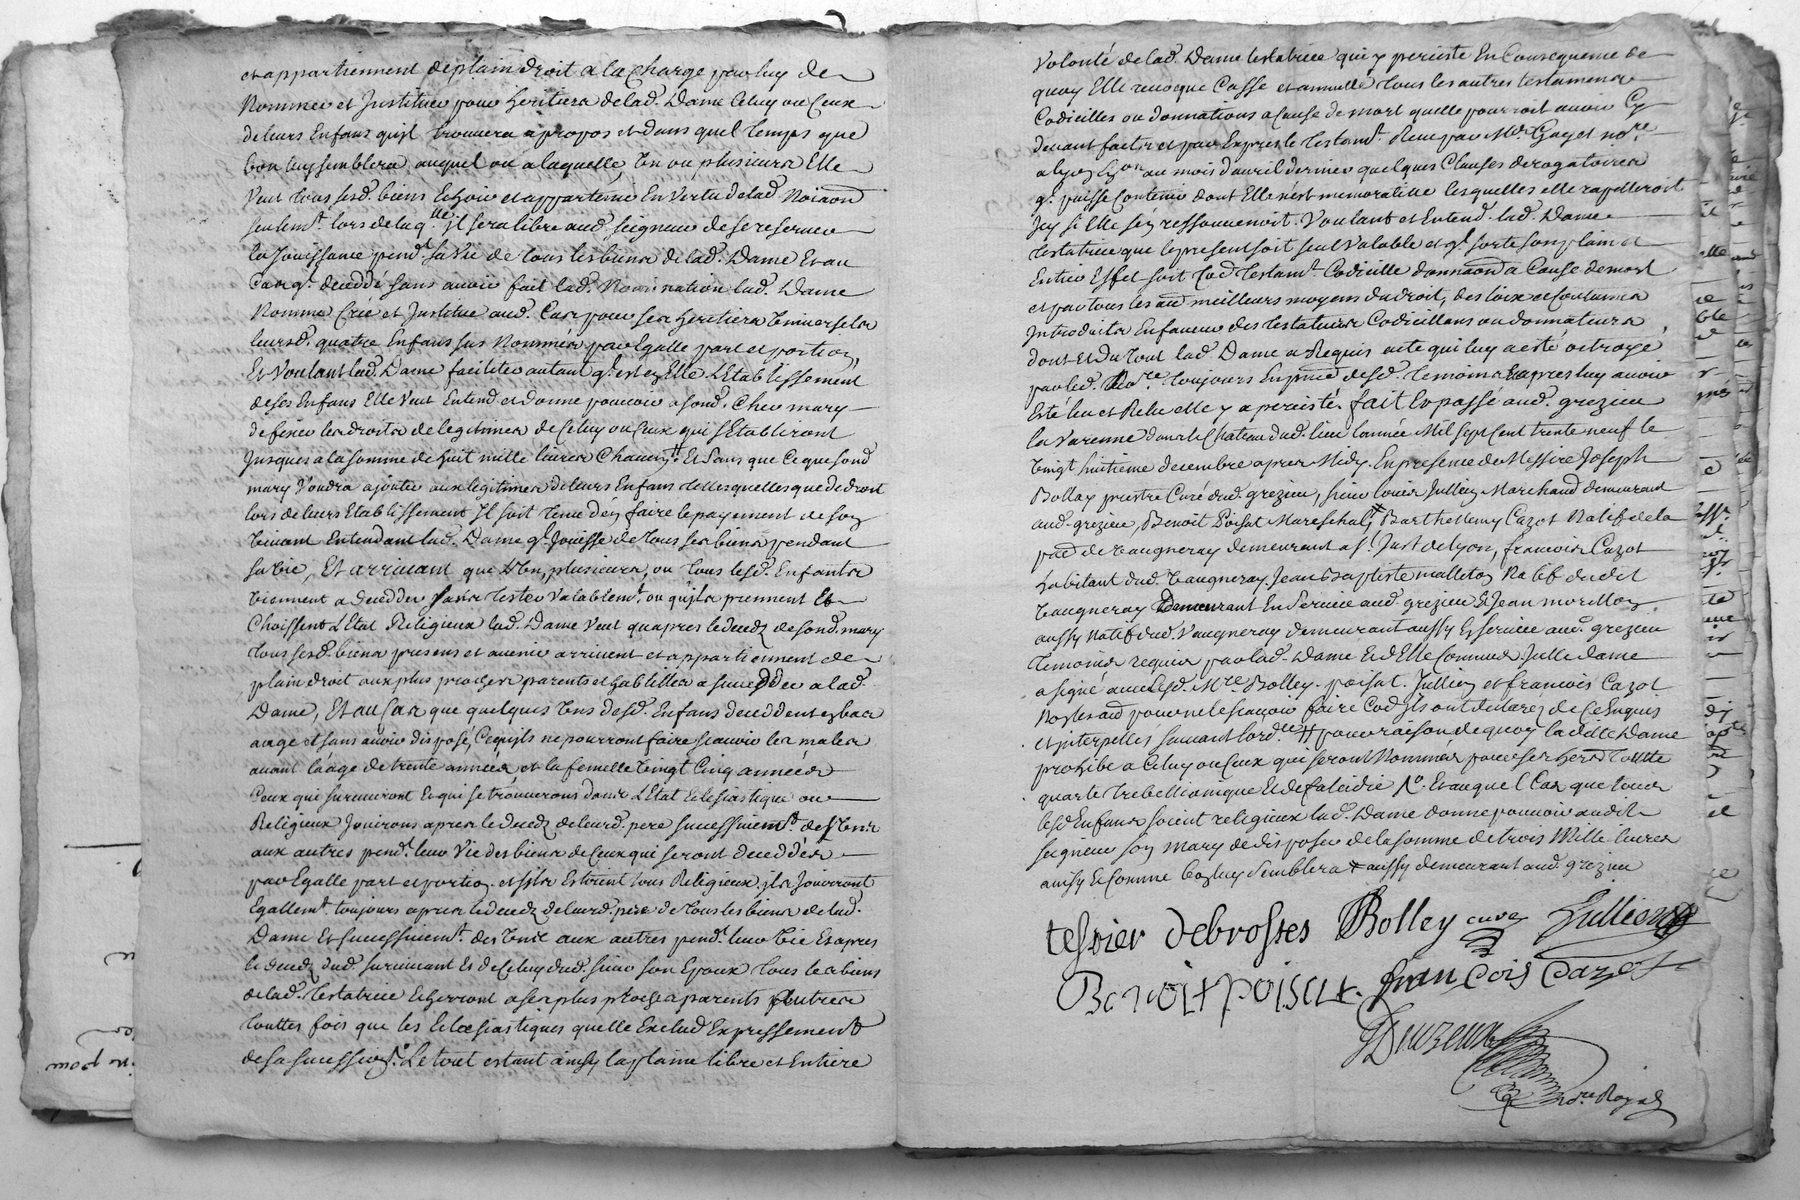 et appartiennent de plain droit a la Charge par luy de
Nommer et Instituer pour heritiers de lad. Dame Celuy ou Ceux
de leurs Enfans quil trouvera a propos et dans quel temps que
bon luy semblera, auquel ou a laquelle, Un ou plusieurs Elle
Veut tous sesd. biens Echoir et appartenir En vertu de lad. Noiaon
seulemt. lors de laqlle. il sera libre aud. seigneur de se reserver
la Jouissance pendt. sa Vie de tous les biens de lad. Dame Et au
Cas qt. decedde sans avoir fait lad. Nomination lad. Dame
Nomme Crée et Institue aud. Cas pour ses heritiers Universels
leursd. quatre Enfans sus Nommés par Egalle part et portion,
Et Voulant lad. Dame faciliter autant ql. est en Elle L'Etablissement
de ses Enfans Elle Veut Entend et donne pouvoir a sond. Cher mary
de fixer les droits de legitimes de Celuy ou Ceux qui s'Etabliront
Jusques a la somme de huit mille livres Chacun, Et Sans que Ce que sond
mary Voudra ajouter aux legitimes de leurs Enfans telles quelles que de droit
lors de leurs Etablissement Il soit tenu d'en faire le payement de son
Vivant Entendant lad. Dame ql. Jouisse de tous ses biens pendant
sa Vie, Et arrivant que l'Un, plusieurs, ou tous lesd. Enfants
Viennent a decedder sans tester Valablemt. ou quils prennent Et
Choissent L'Etat Religieux lad. Dame Veut quapres le decedz de sond. mary
tous sesd. biens presens et avenir arrivent et appartiennent de
plain droit aux plus proches parents et habilles a succeder a lad.
Dame, Et au Cas que quelques Uns desd. Enfans deceddent en bas
aage et sans avoir disposé, Ce quils ne pourront faire scavoir les males
avant l'aage de trente années, et la femelle Vingt Cinq années
Ceux qui survivront Et qui se trouverons dans L'Etat Eclesiastique ou
Religieux Jouirons apres le decedz de leurd. pere successivemt. des Uns
aux autres pendt. leur Vie des biens de Ceux qui seront deceddés
par Egalle part et portion. et sils Estoient tous Religieux, ils Jouirront
Egallemt. toujours apres le decedz de leurd. pere de tous les biens de lad.
Dame Et successivemt. des Uns aux autres pendt. leur Vie Et apres
le decedz dud. survivant Et de Celuy dud. sieur son Epoux tous les biens
de lad. testatrice Echerront a ses plus proches parents Autres
touttes fois que les Eclesiastiques quelle Exclud Expressement
de sa succession. Le tout estant ainsy la plaine libre et Entiere
Volonté de lad. Dame testatrice qui y persiste En Consequence de
quoy Elle revoque Casse et annulle tous les autres testamens
Codicilles ou donnations a Cause de mort quelle pourroit avoir Cy
devant fait et par Exprès le testamt. Receu par Me. Gayet nore.
a Lyon au mois d'avril dernier quelques Clauses derogatoires
ql. puisse Contenir dont Elle n'est memorative lesquelles elle rapelleroit
Icy si Elle s'en ressouvenoit. Voulant et Entend. lad. Dame
testatrice que le present soit seul Valable et ql. sorte son plain et
Entier Effet soit Par testamt. Codicille donnaon a Cause de mort
et par tous les aud meilleurs moyens du droit, des loix et Coutumes
Introduits En faveur des testateurs Codicillans ou donnateurs,
dont Et du tout lad. Dame a Requis acte qui luy a esté octroyé
par led. Nore. toujours En pnce. desd. temoins Et apres luy avoir
Esté leu et Releu elle y a persisté. fait et passé aud. grezieu
la Varenne dans le Chateau dud. lieu l'année Mil sept cent trente neuf le
Vingt huitieme decembre apres Midy. En presence de Messire Joseph
Bollay prestre Curé dud. grezieu, sieur louis Jullien Marchand demeurant
aud. grezieu, Benoit Poisat Mareschal, # Barthellemy Cazot Natif de la
psse de Vaugneray demeurant a St. Just de Lyon, francois Cazot
habitant dud. Vaugneray. Jean Baptiste malleton Natif dudit
Vaugneray demeurant En Service aud. grezieu Et Jean morillon
aussy natif dud. Vaugneray demeurant aussy En service aud. grezieu
temoins requis par lad. Dame Et d'Elle Connus. Jcelle dame
a signé avec lesd. Mre. Bolley. poisat. Jullien et francois Cazot
Non les aud pour ne le scavoir faire Cod ils ont declaré de Ce Enquis
et interpellés suivant lordce. # pour raison de quoy la ditte Dame
prohibe a Celuy ou Ceux qui seront Nommés pour ses hers. toutte
quarte trebellianique Et de falcidie No. Et auquel Cas que tous
lesd Enfans soient religieux lad. Dame donne pouvoir audit
seigneur son Mary de disposer de la somme de trois Mille livres
ainsy Et Comme bon luy semblera # aussy demeurant aud. grezieu
tessier debrosses Bolley curé Jullien
Benoit poisat. francois Cazot
Duzeux
Nore. Royal